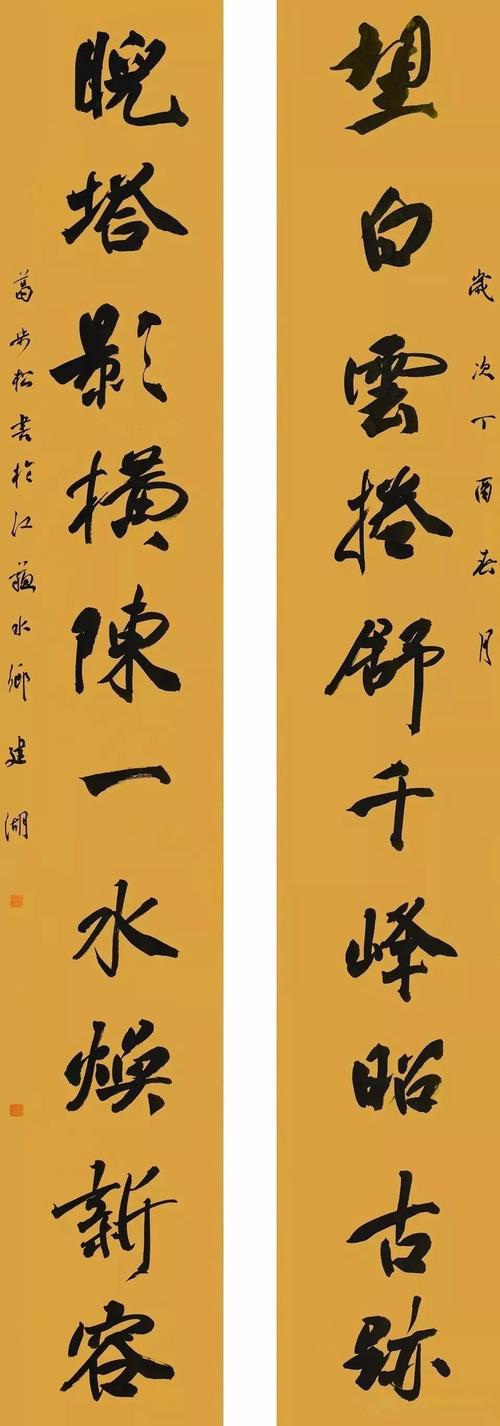 歲次丁酉春月
望白雲捲舒千峰昭古跡
睨塔影橫陳一水煥新容
葛步松書於江蘇水鄉建湖